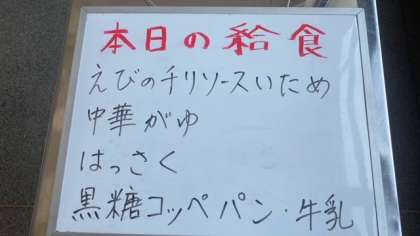 本日の給食
えびのチリソースいため
中華がゆ
はっさく
黒糖コッペパン・牛乳